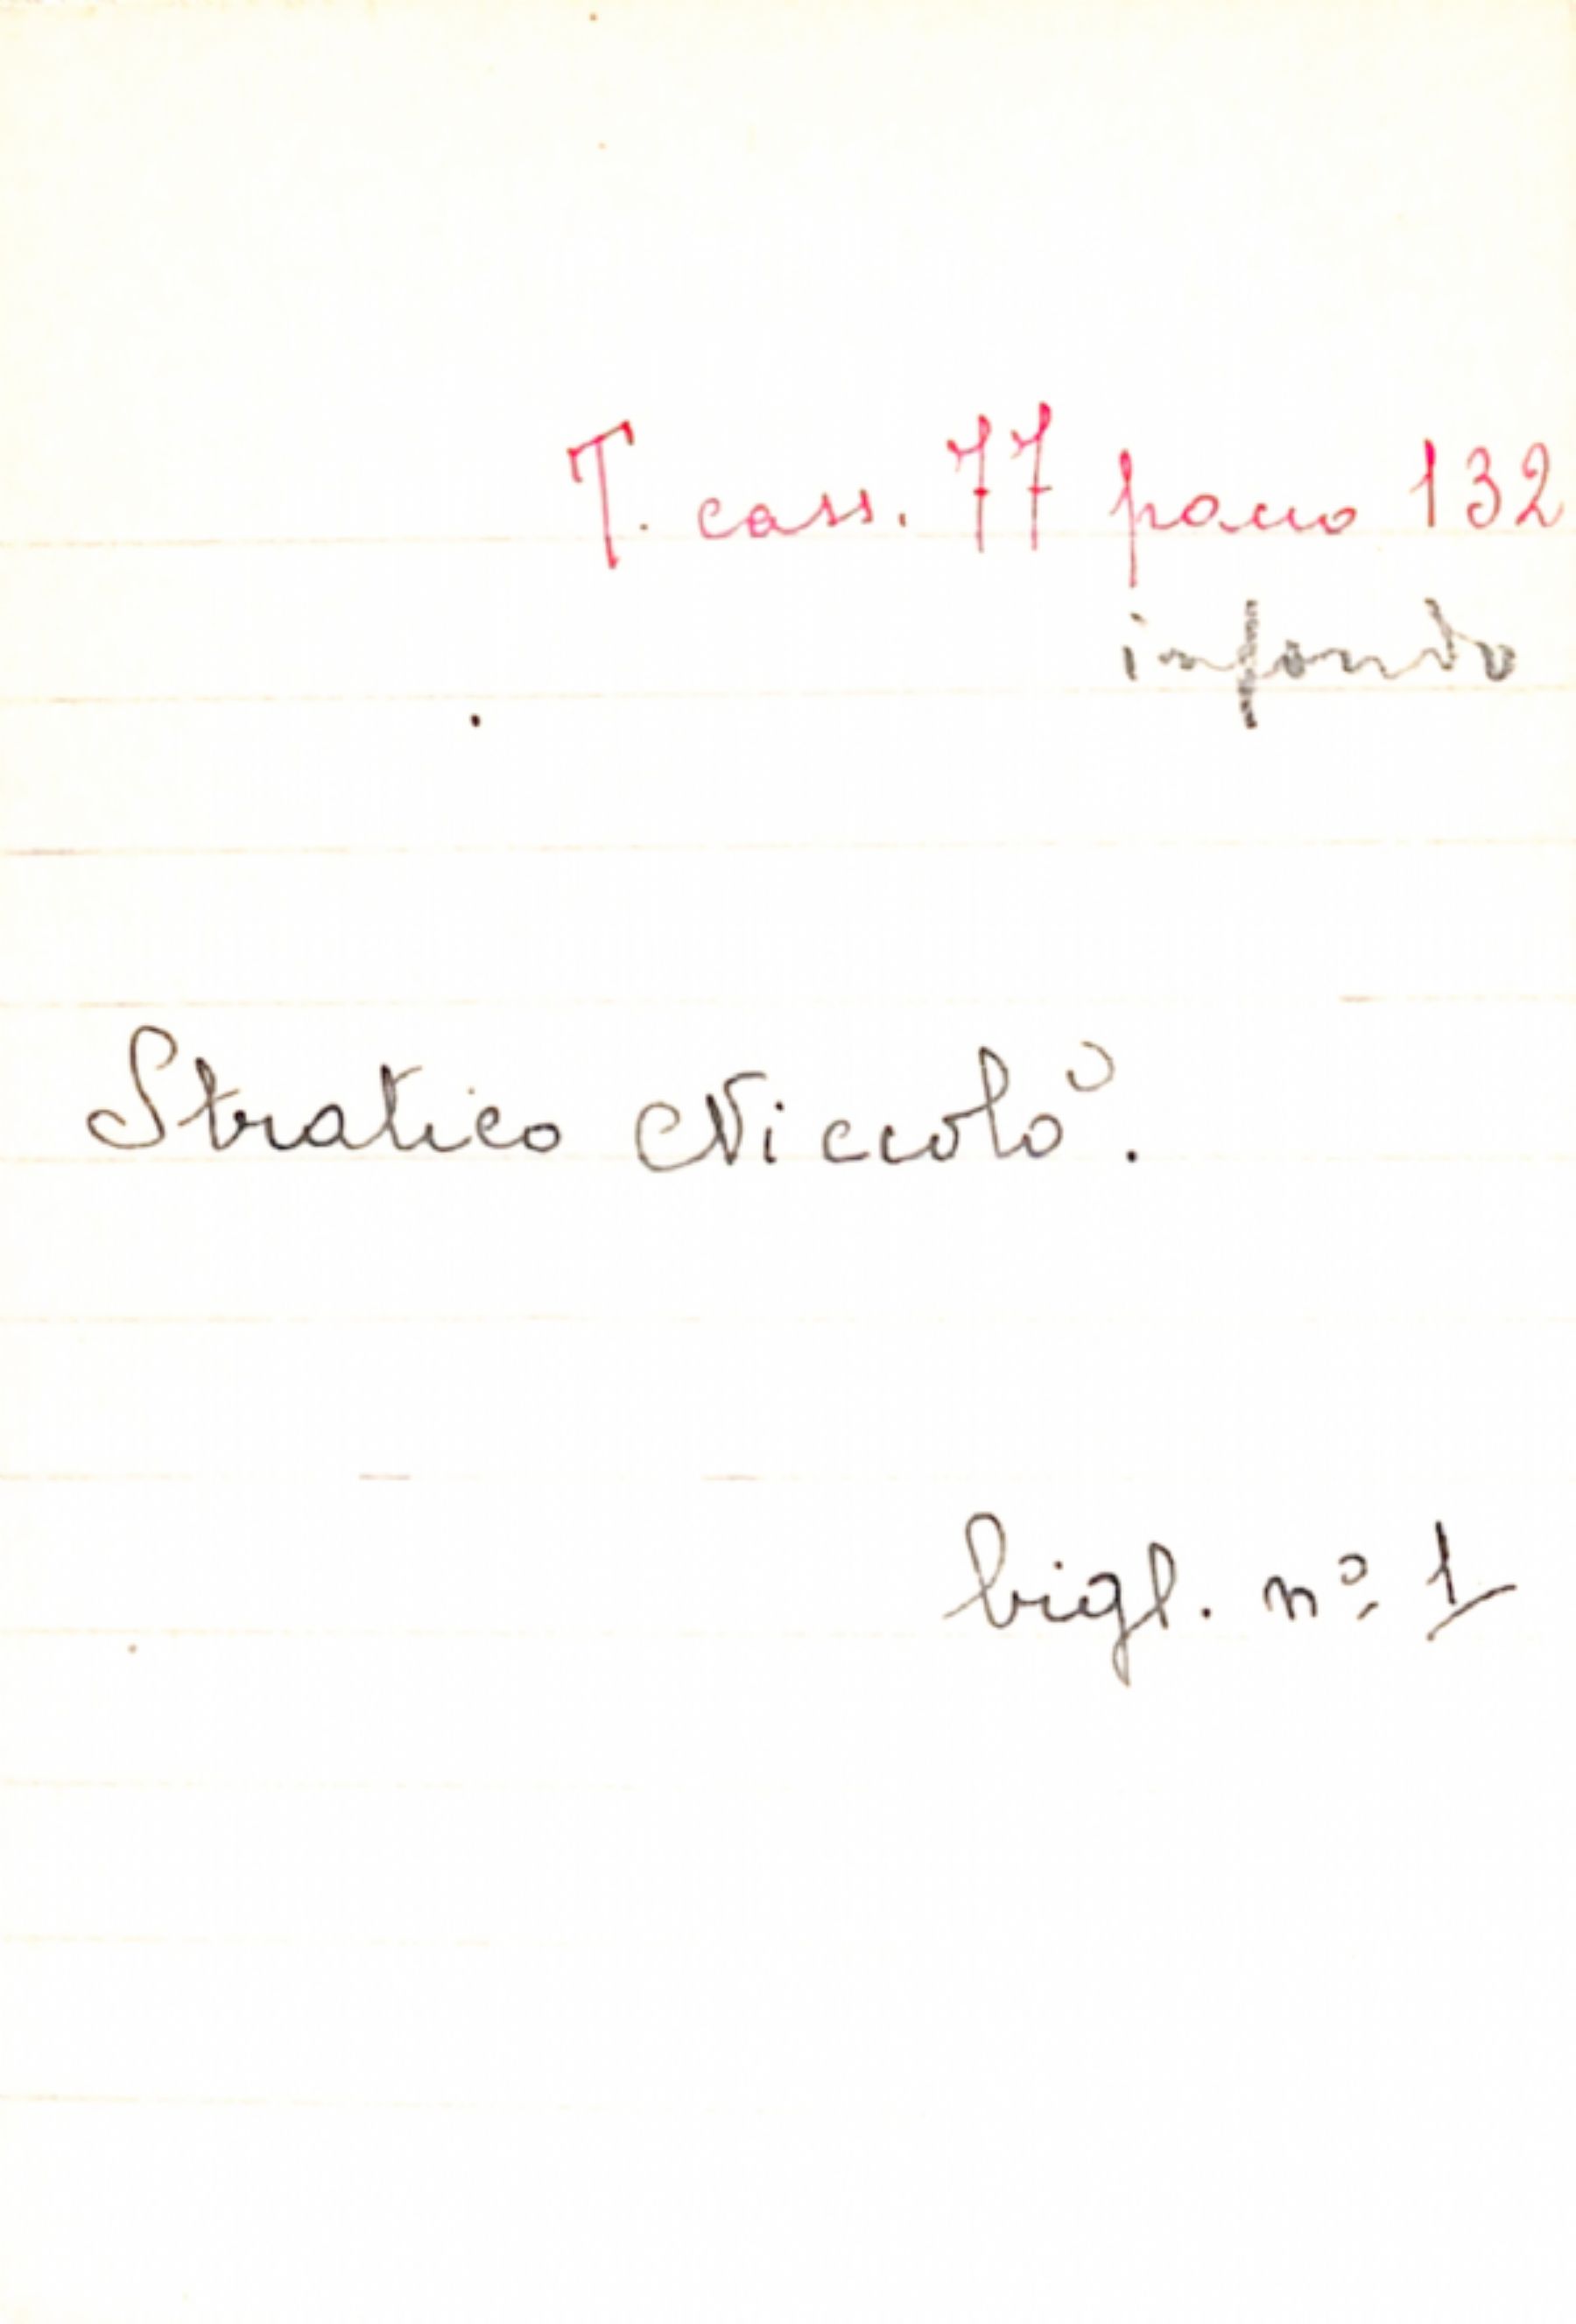 T. cass. 77 pacco 132
in fondo
Stratico Niccolò.
bigl. nº 1